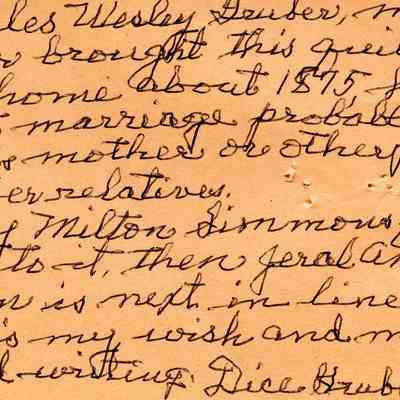 les Wesley Gruber, m
r brought this quil
home about 1875, f
marriage probabl
s mother or otherp
er relatives.
y Milton Simmons,
to it, then Jeral An
n is next in line
is my wish and m
d writing. Dice Grub